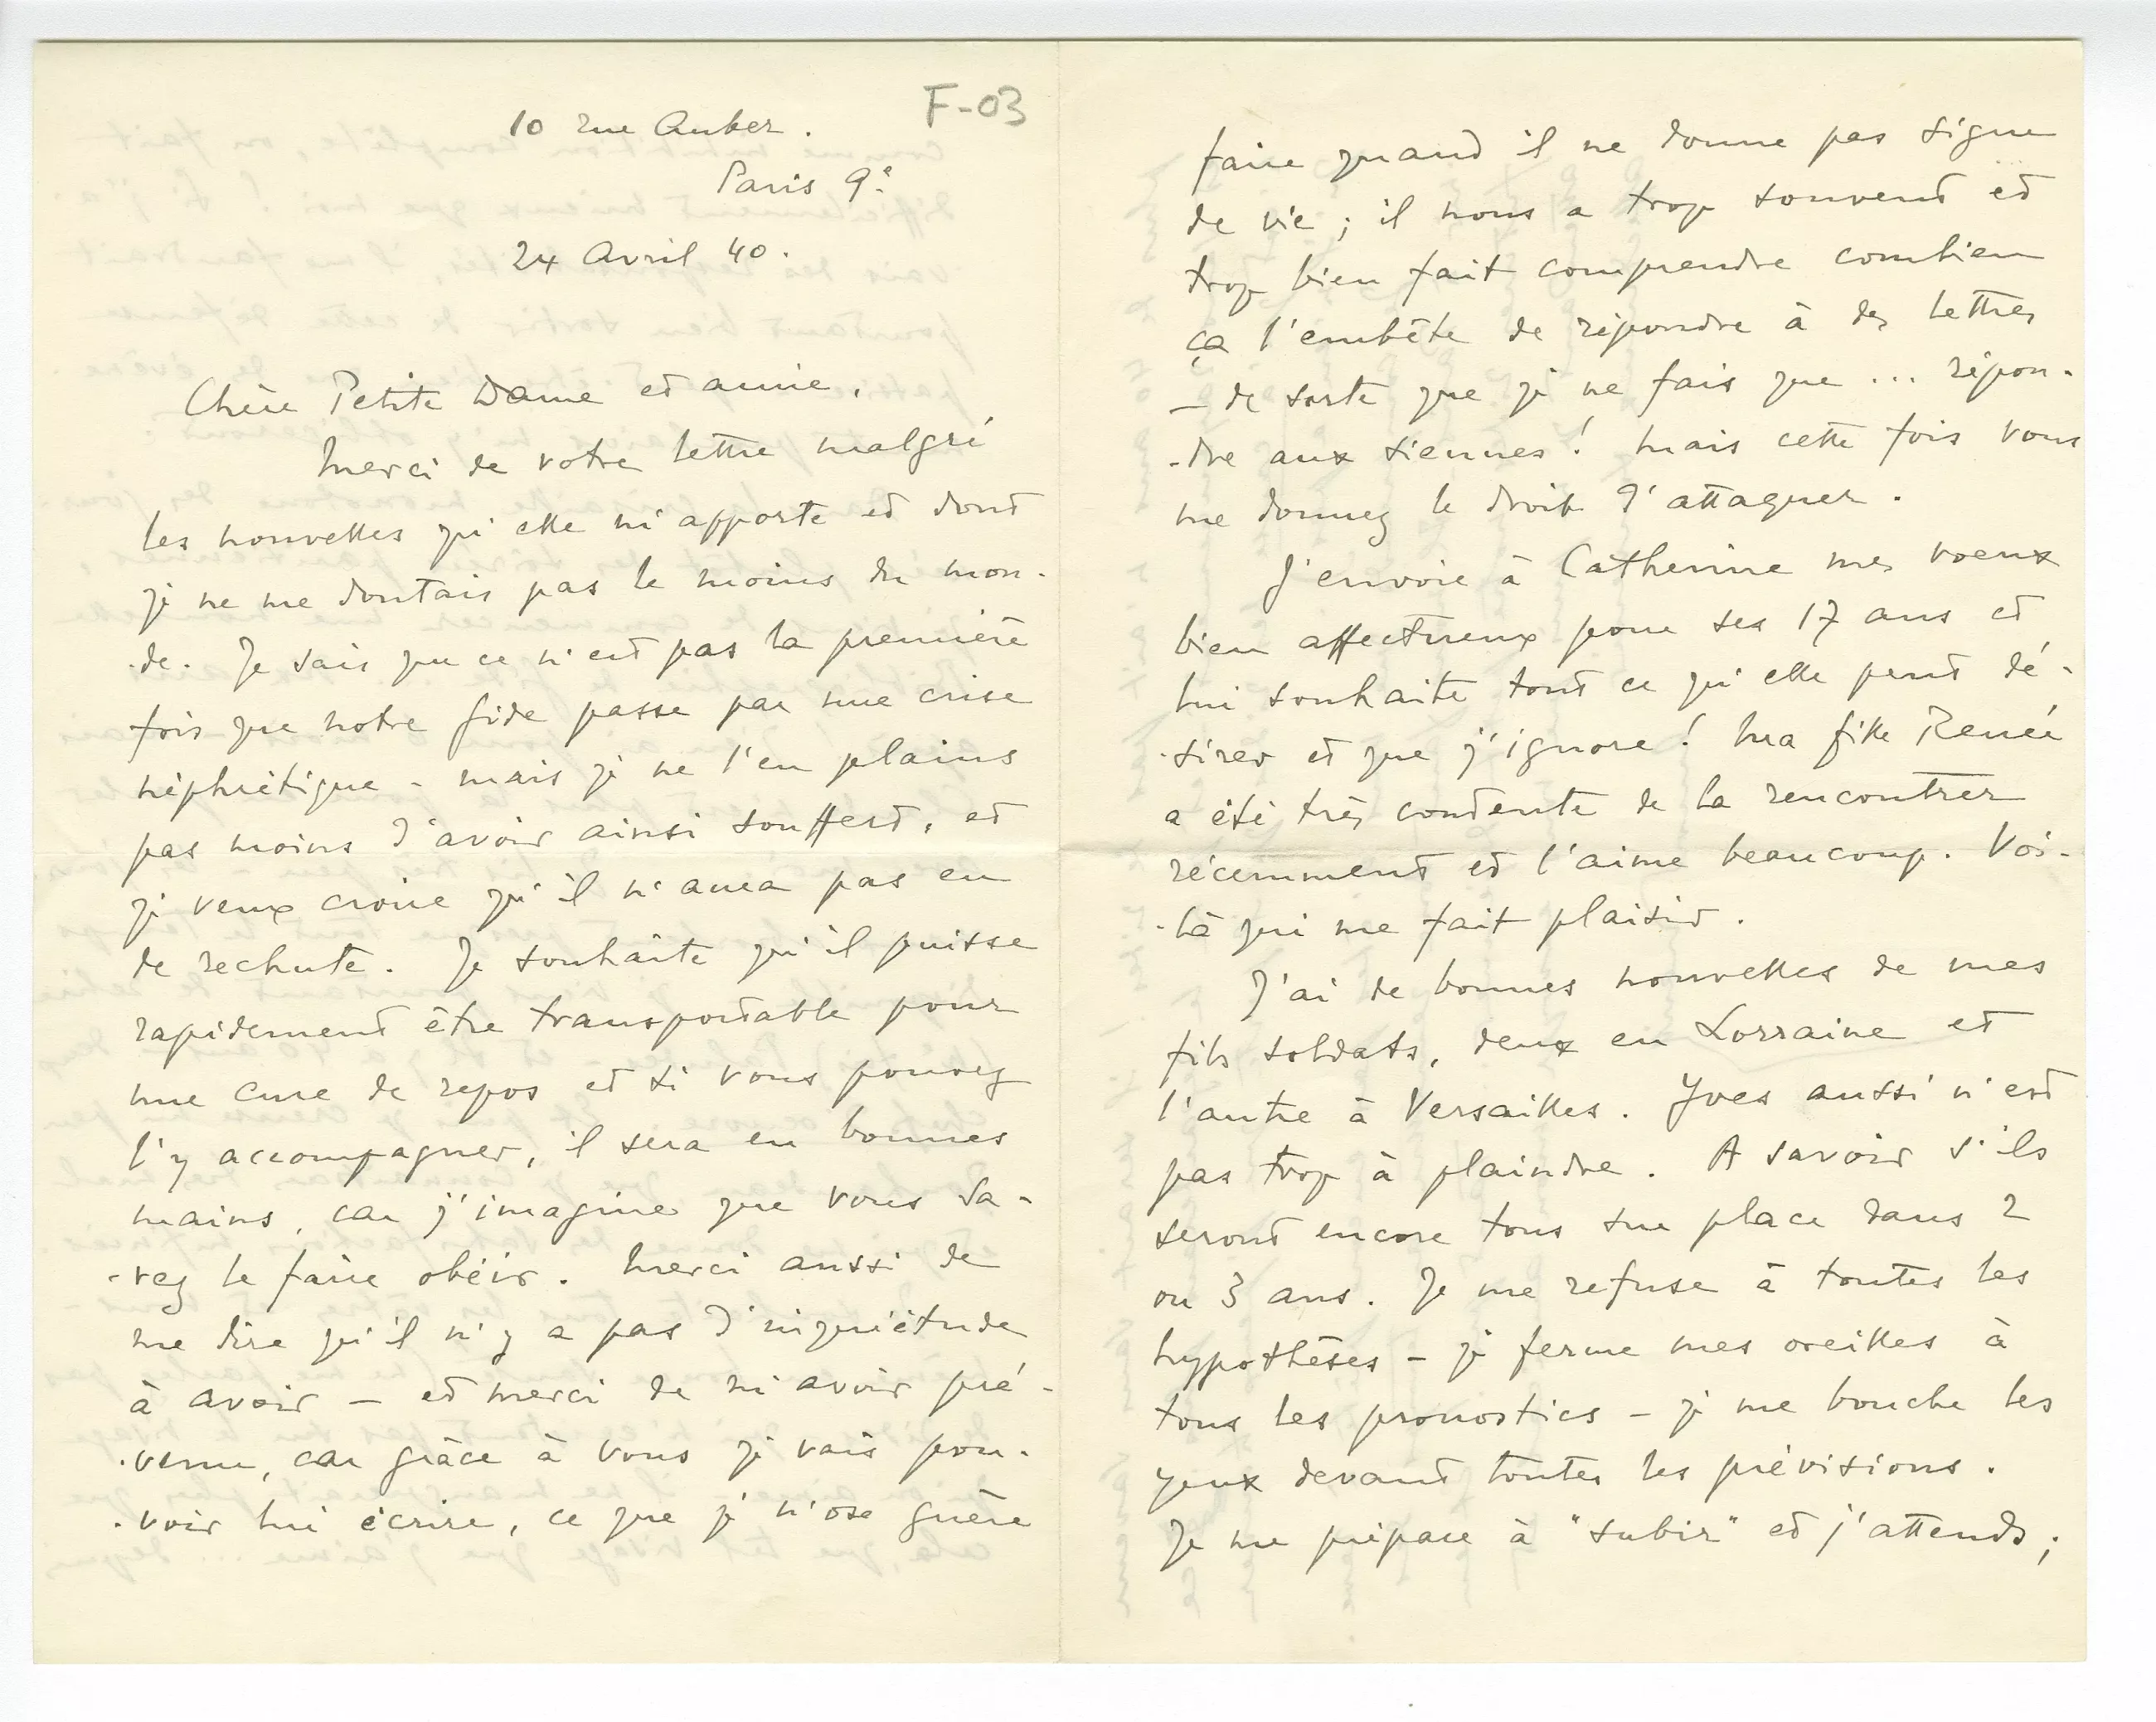 F-03
10 rue Auber.
Paris 9e
24 Avril 40.
Chère Petite Dame et amie,
Merci de votre lettre malgré
les nouvelles qu'elle m'apporte et dont
je ne me doutais pas le moins du mon-
-de. Je sais que ce n'est pas la première
fois que notre Gide passe par une crise
néphrétique - mais je ne l'en plains
pas moins d'avoir ainsi souffert, et
je veux croire qu'il n'aura pas eu
de rechute. Je souhaite qu'il puisse
rapidement être transportable pour
une cure de repos et si vous pouvez
l'y accompagner, il sera en bonnes
mains, car j'imagine que vous sa-
-vez le faire obéir. Merci aussi de
me dire qu'il n'y a pas d'inquiétude
à avoir — et merci de m'avoir pré-
-venu, car grâce à vous je vais pou-
-voir lui écrire, ce que je n'ose guère
faire quand il ne donne pas signe
de vie ; il nous a trop souvent et
trop bien fait comprendre combien
ça l'embête de répondre à des lettres
— de sorte que je ne fais que ... répon-
-dre aux siennes ! Mais cette fois vous
me donnez le droit d'attaquer.
J'envoie à Catherine mes voeux
bien affectueux pour ses 17 ans et
lui souhaite tout ce qu'elle peut dé-
-sirer et que j'ignore ! Ma fille Renée
a été très contente de la rencontrer
récemment et l'aime beaucoup. Voi-
-là qui me fait plaisir.
J'ai de bonnes nouvelles de mes
fils soldats, deux en Lorraine et
l'autre à Versailles. Yves aussi n'est
pas trop à plaindre. A savoir s'ils
seront encore tous sur place dans 2
ou 3 ans. Je me refuse à toutes les
hypothèses — je ferme mes oreilles à
tous les pronostics — je me bouche les
yeux devant toutes les prévisions.
Je me prépare à "subir" et j'attends ;